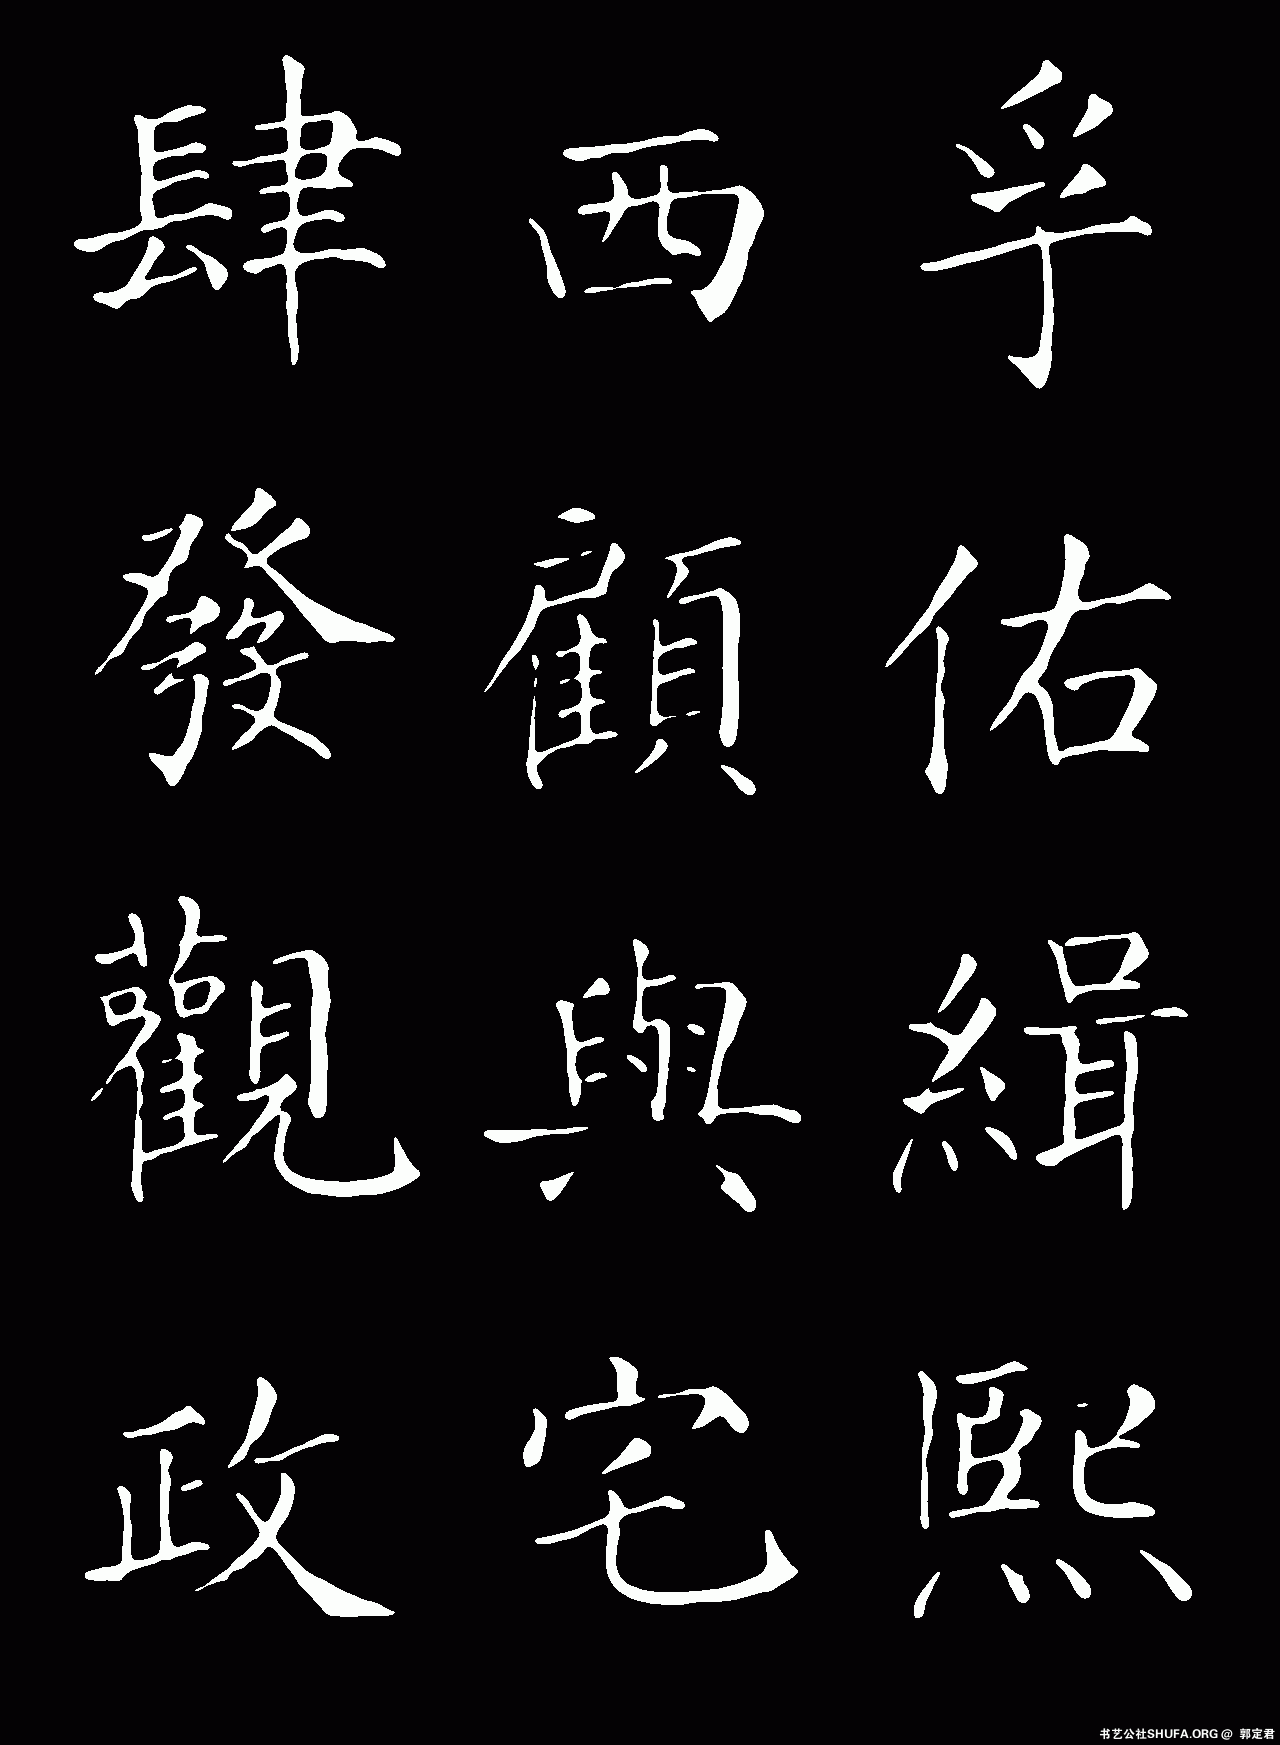 孚佑緝熙
西顧與宅
肆發觀政
书艺公社SHUFA.ORG @ 郭定君